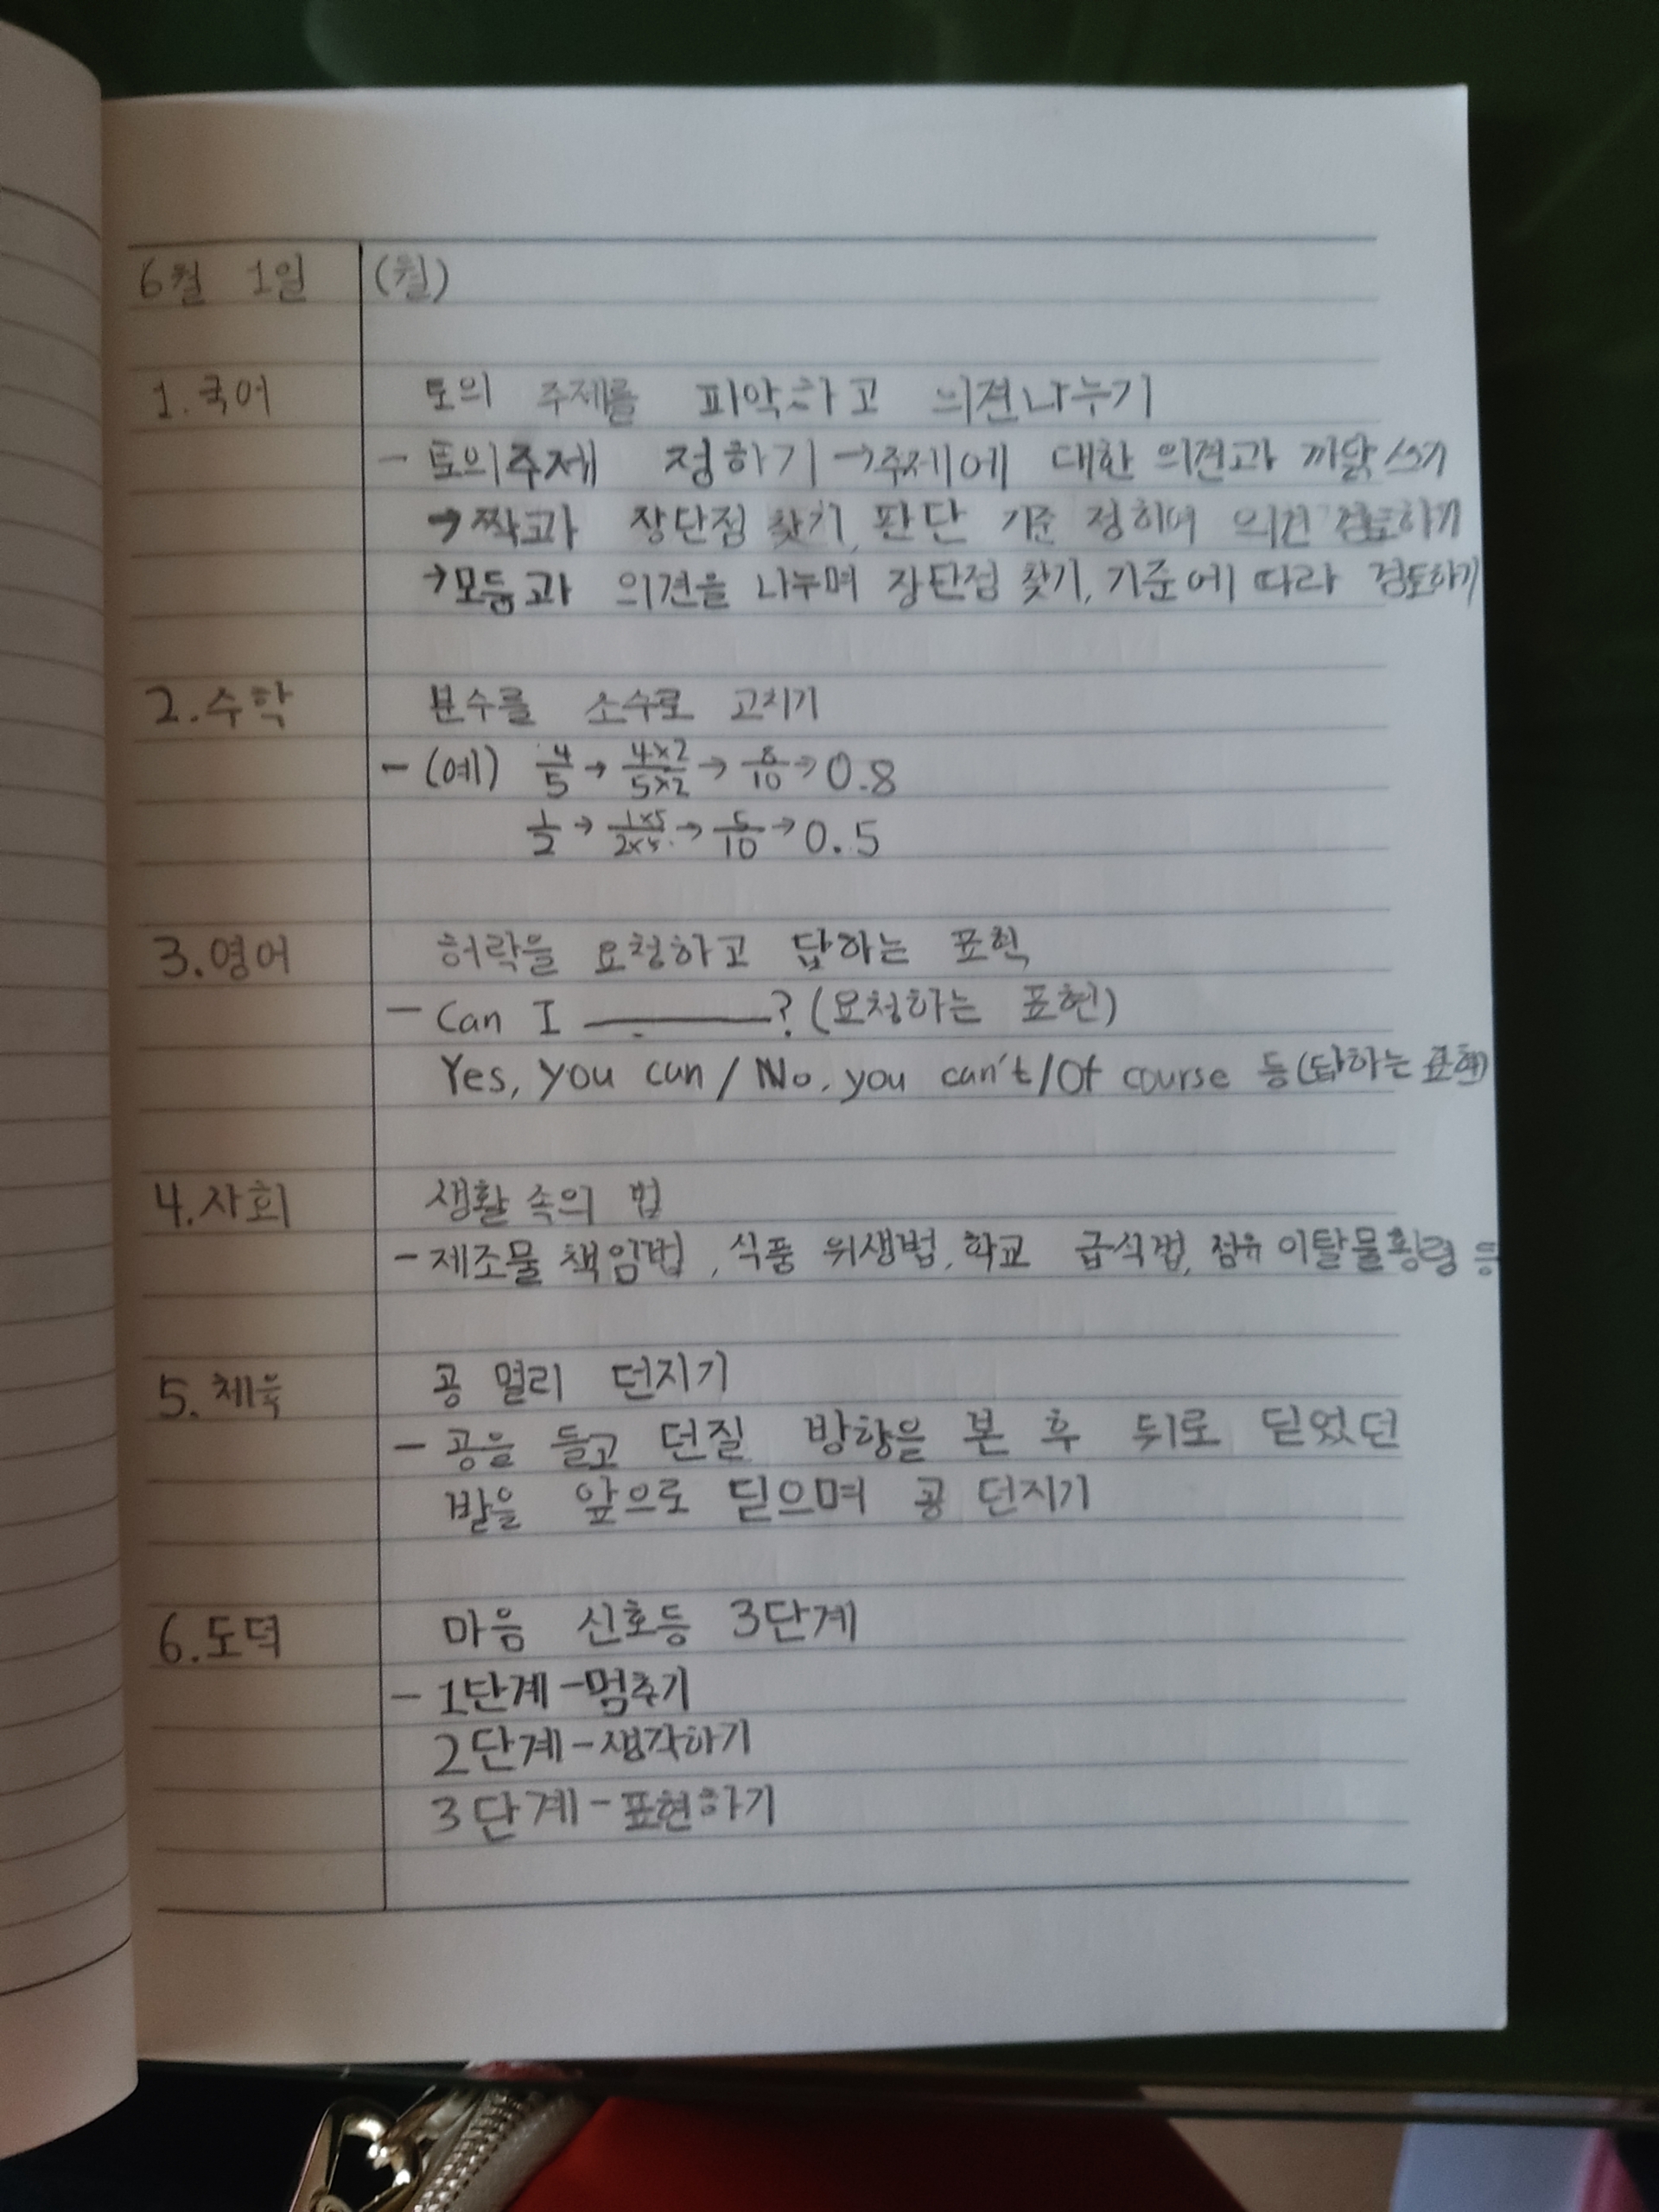 6월 1일 (월)
1. 국어 토의 주제를 파악하고 의견나누기
- 토의주제 정하기 →주제에 대한 의견과 까닭 쓰기
→짝과 장단점 찾기, 판단 기준 정하여 의견 검토하기
→모둠과 의견을 나누며 장단점 찾기, 기준에 따라 검토하기
2. 수학 분수를 소수로 고치기
- (예) 4/5 → 4×2/5×2 → 8/10 → 0.8
1/2 → 1×5/2×5 → 5/10 → 0.5
3. 영어 허락을 요청하고 답하는 표현
- Can I ______? (요청하는 표현)
Yes, you can / No, you can't / Of course 등 (답하는 표현)
4. 사회 생활 속의 법
- 제조물 책임법, 식품 위생법, 학교 급식법, 점유 이탈물횡령 등
5. 체육 공 멀리 던지기
- 공을 들고 던질 방향을 본 후 뒤로 딛었던
발을 앞으로 딛으며 공 던지기
6. 도덕 마음 신호등 3단계
- 1단계 - 멈추기
2단계 - 생각하기
3단계 - 표현하기